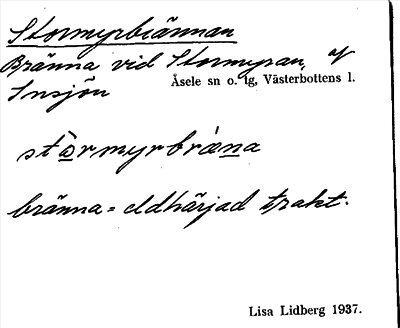 Stormyrbrännan
Bränna vid Stormyran, af
Insjön
Åsele sn o. tg, Västerbottens l.
stòrmyrbræ̀na
bränna = eldhärjad trakt.
Lisa Lidberg 1937.